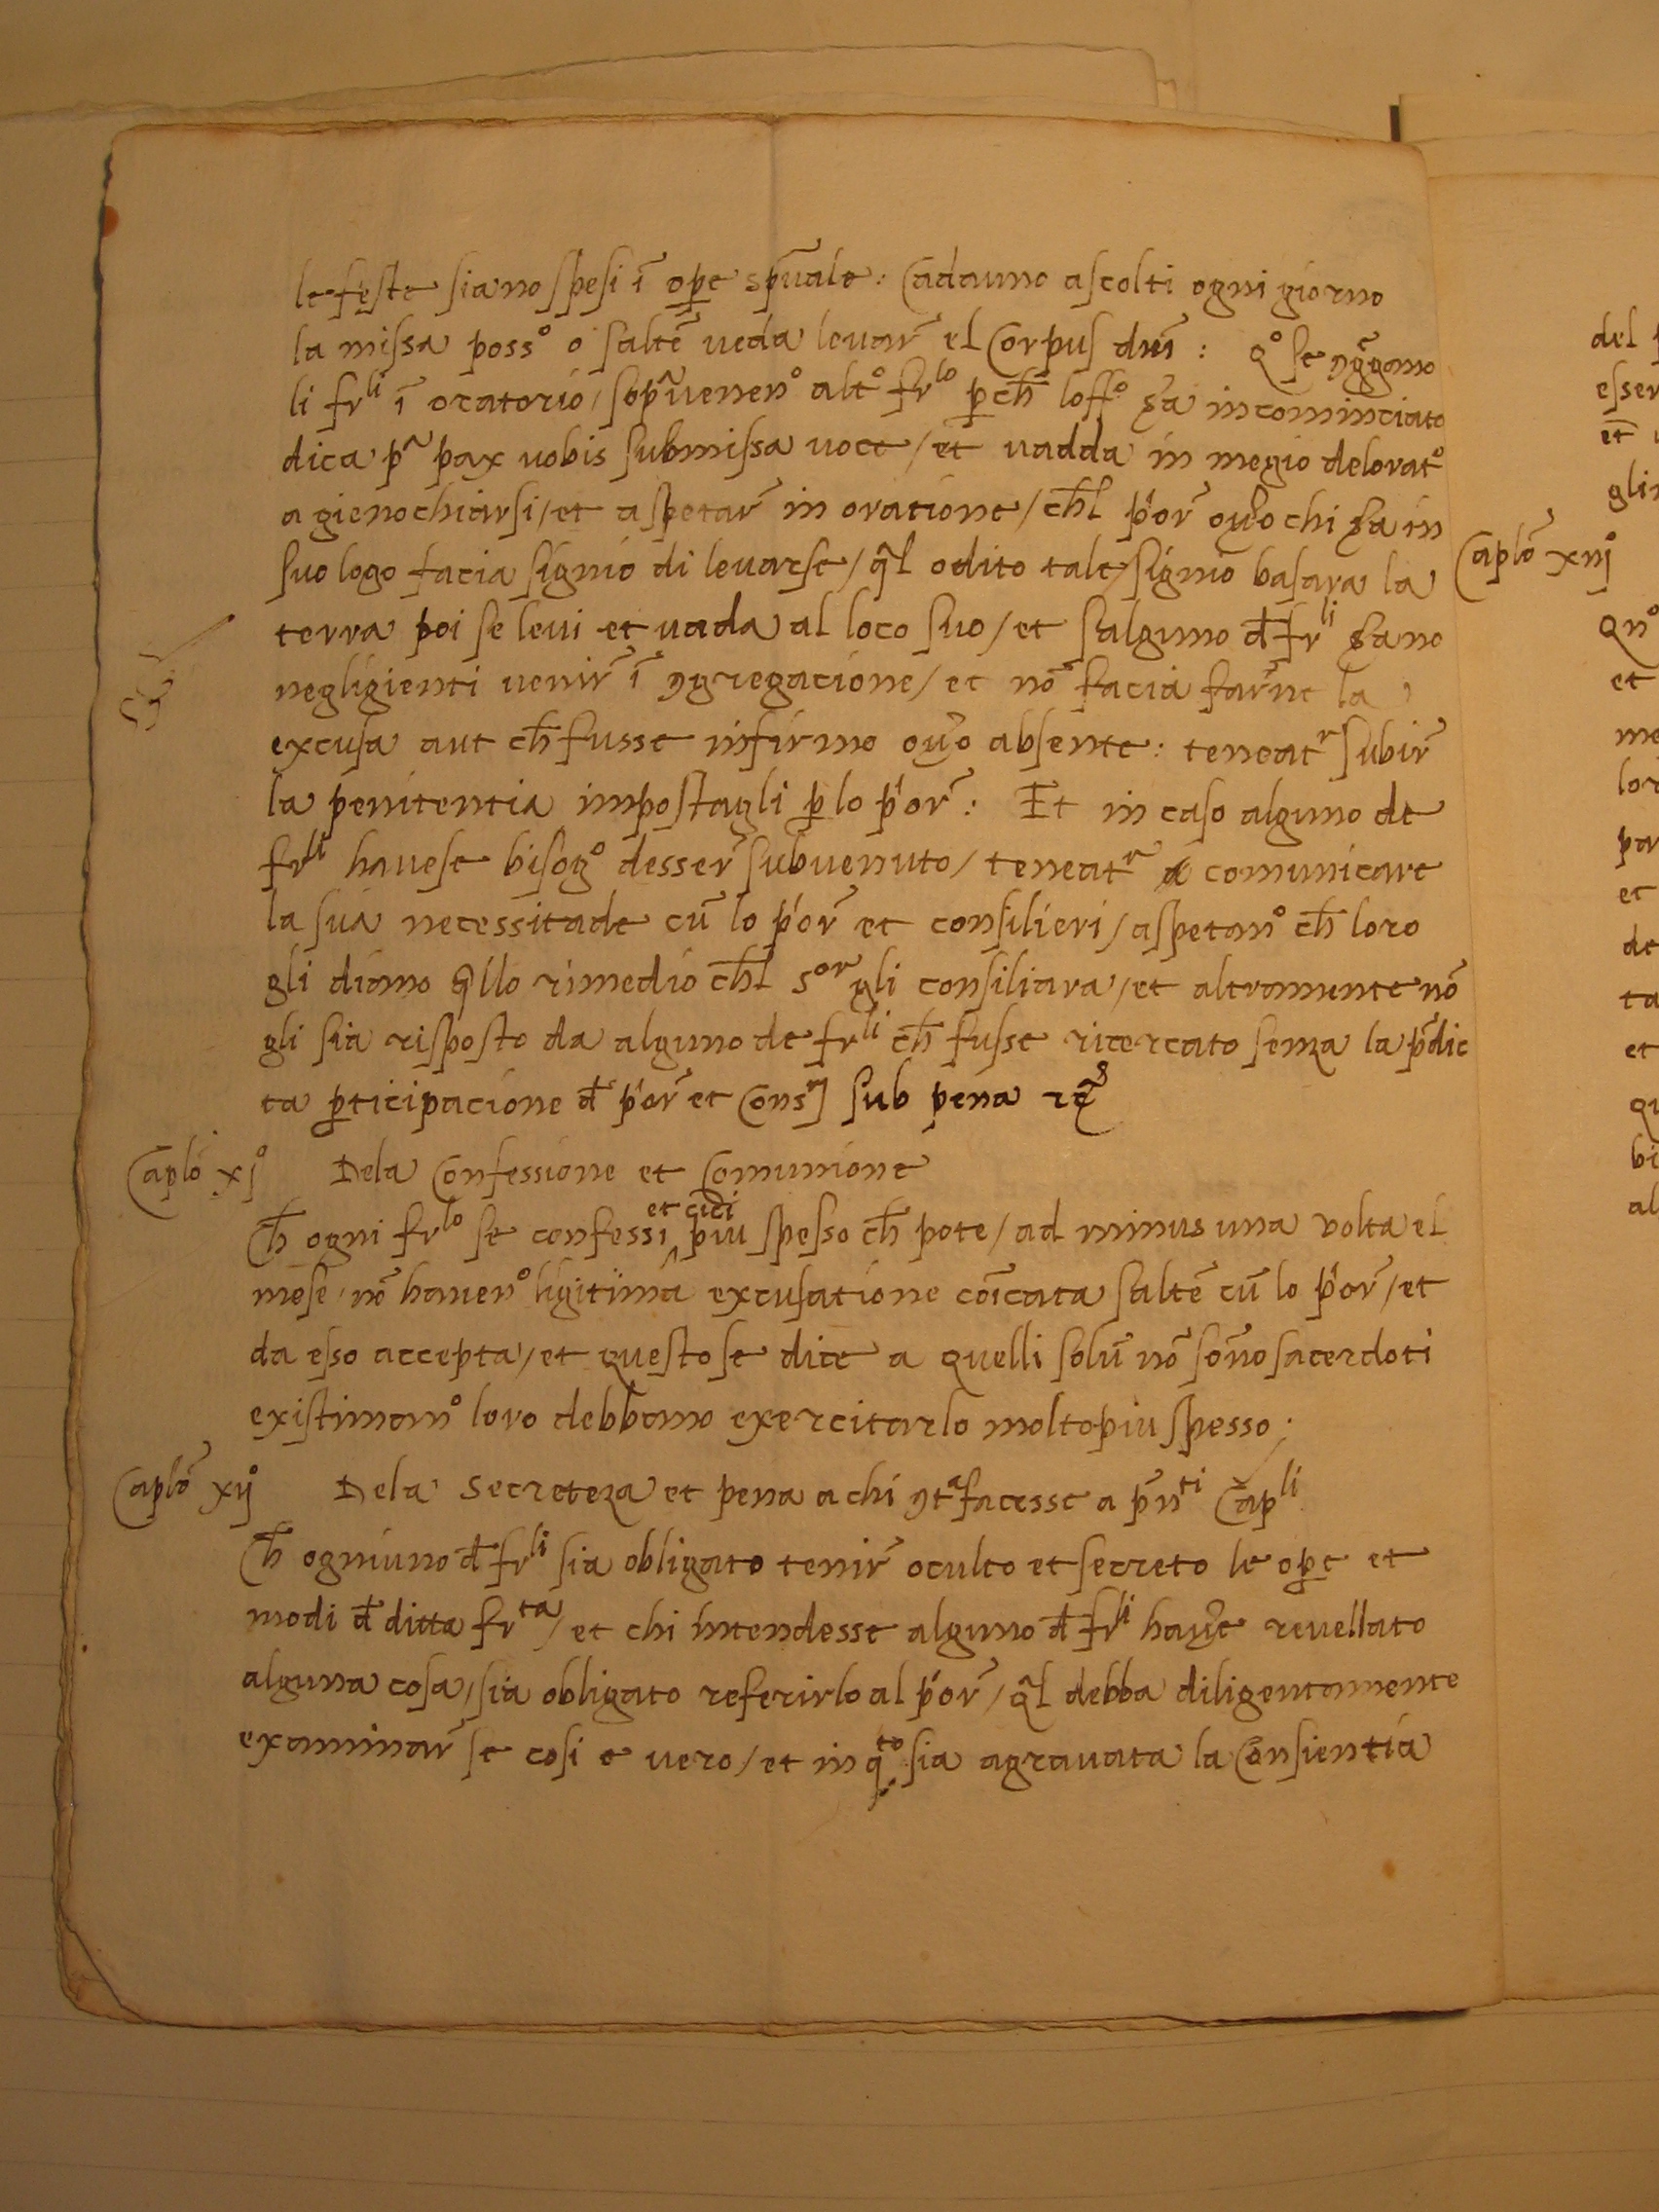 le feste siano spesi ī ope spūale : Cadauno ascolti ogni giorno
la missa poss° o saltē veda levar̄ el Corpus dn̄i : q° se ꝯgregano
li frˡⁱ ī oratorio / sop̄venen° alt° frˡ° ꝑ ch̄ loff° sa incominciato
dica pᵃ pax vobis submissa voce / et vadda in megio delorat°
a gienochiarsi / et aspetar̄ in oratione / ch̄l p̄or̄ ov̄o chi sa in
suo logo facia signio di levarse / q̄l odito tale signio basara la
terra poi se levi et vada al loco suo / et salguno đ frˡⁱ sano
negligienti venir̄ ī ꝯgregacione / et nō facia far̄ne la
excusa aut ch̄ fusse infirmo ov̄o absente : teneatʳ subir̄
la penitentia impostagli ꝑ lo p̄or̄ : Et in caso alguno de
frˡⁱ havese bisog° desser̄ subvenuto / teneatʳ a comunicare
la sua necessitade cū lo p̄or̄ et consilieri / aspetan° ch̄ loro
gli diano q̄llo rimedio ch̄l Sᵒʳ gli consiliara / et altramente nō
gli sia risposto da alguno de frˡⁱ ch̄ fusse ricercato senza la p̄dic
ta ꝑticipacione đ p̄or̄ et Consʳʲ sub pena
Caplō xj° Dela Confessione et Comunione
et cici
Ch̄ ogni frˡ° se confessi ^ piu spesso ch̄ pote / ad minus una volta el
mese / nō haven° ligitima excusatione coīcata saltē cū lo p̄or̄ / et
da esso accepta / et questo se dice a quelli solū nō sōno sacerdoti
existiman° loro debbano exercitarlo molto piu spesso :
Caplō xij° Dela secreteza et pena a chi ꝯtᵃfacesse a p̄nᵗⁱ Capˡⁱ
Ch̄ ogniuno đ frˡⁱ sia obligato tenir̄ oculto et secreto le ope et
modi đ ditta frᵗᵃ / et chi intendesse alguno đ frˡⁱ hav̄e revellato
alguna cosa / sia obligato referirlo al p̄or̄ / q̄l debba diligentamente
examinar̄ se cosi e vero / et in qᵗ° sia agravata la Consientia
del
esser
et
gli
Caplō xiij°
Qn°
et
me
lor
par
et
de
ta
et
qu
bi
al